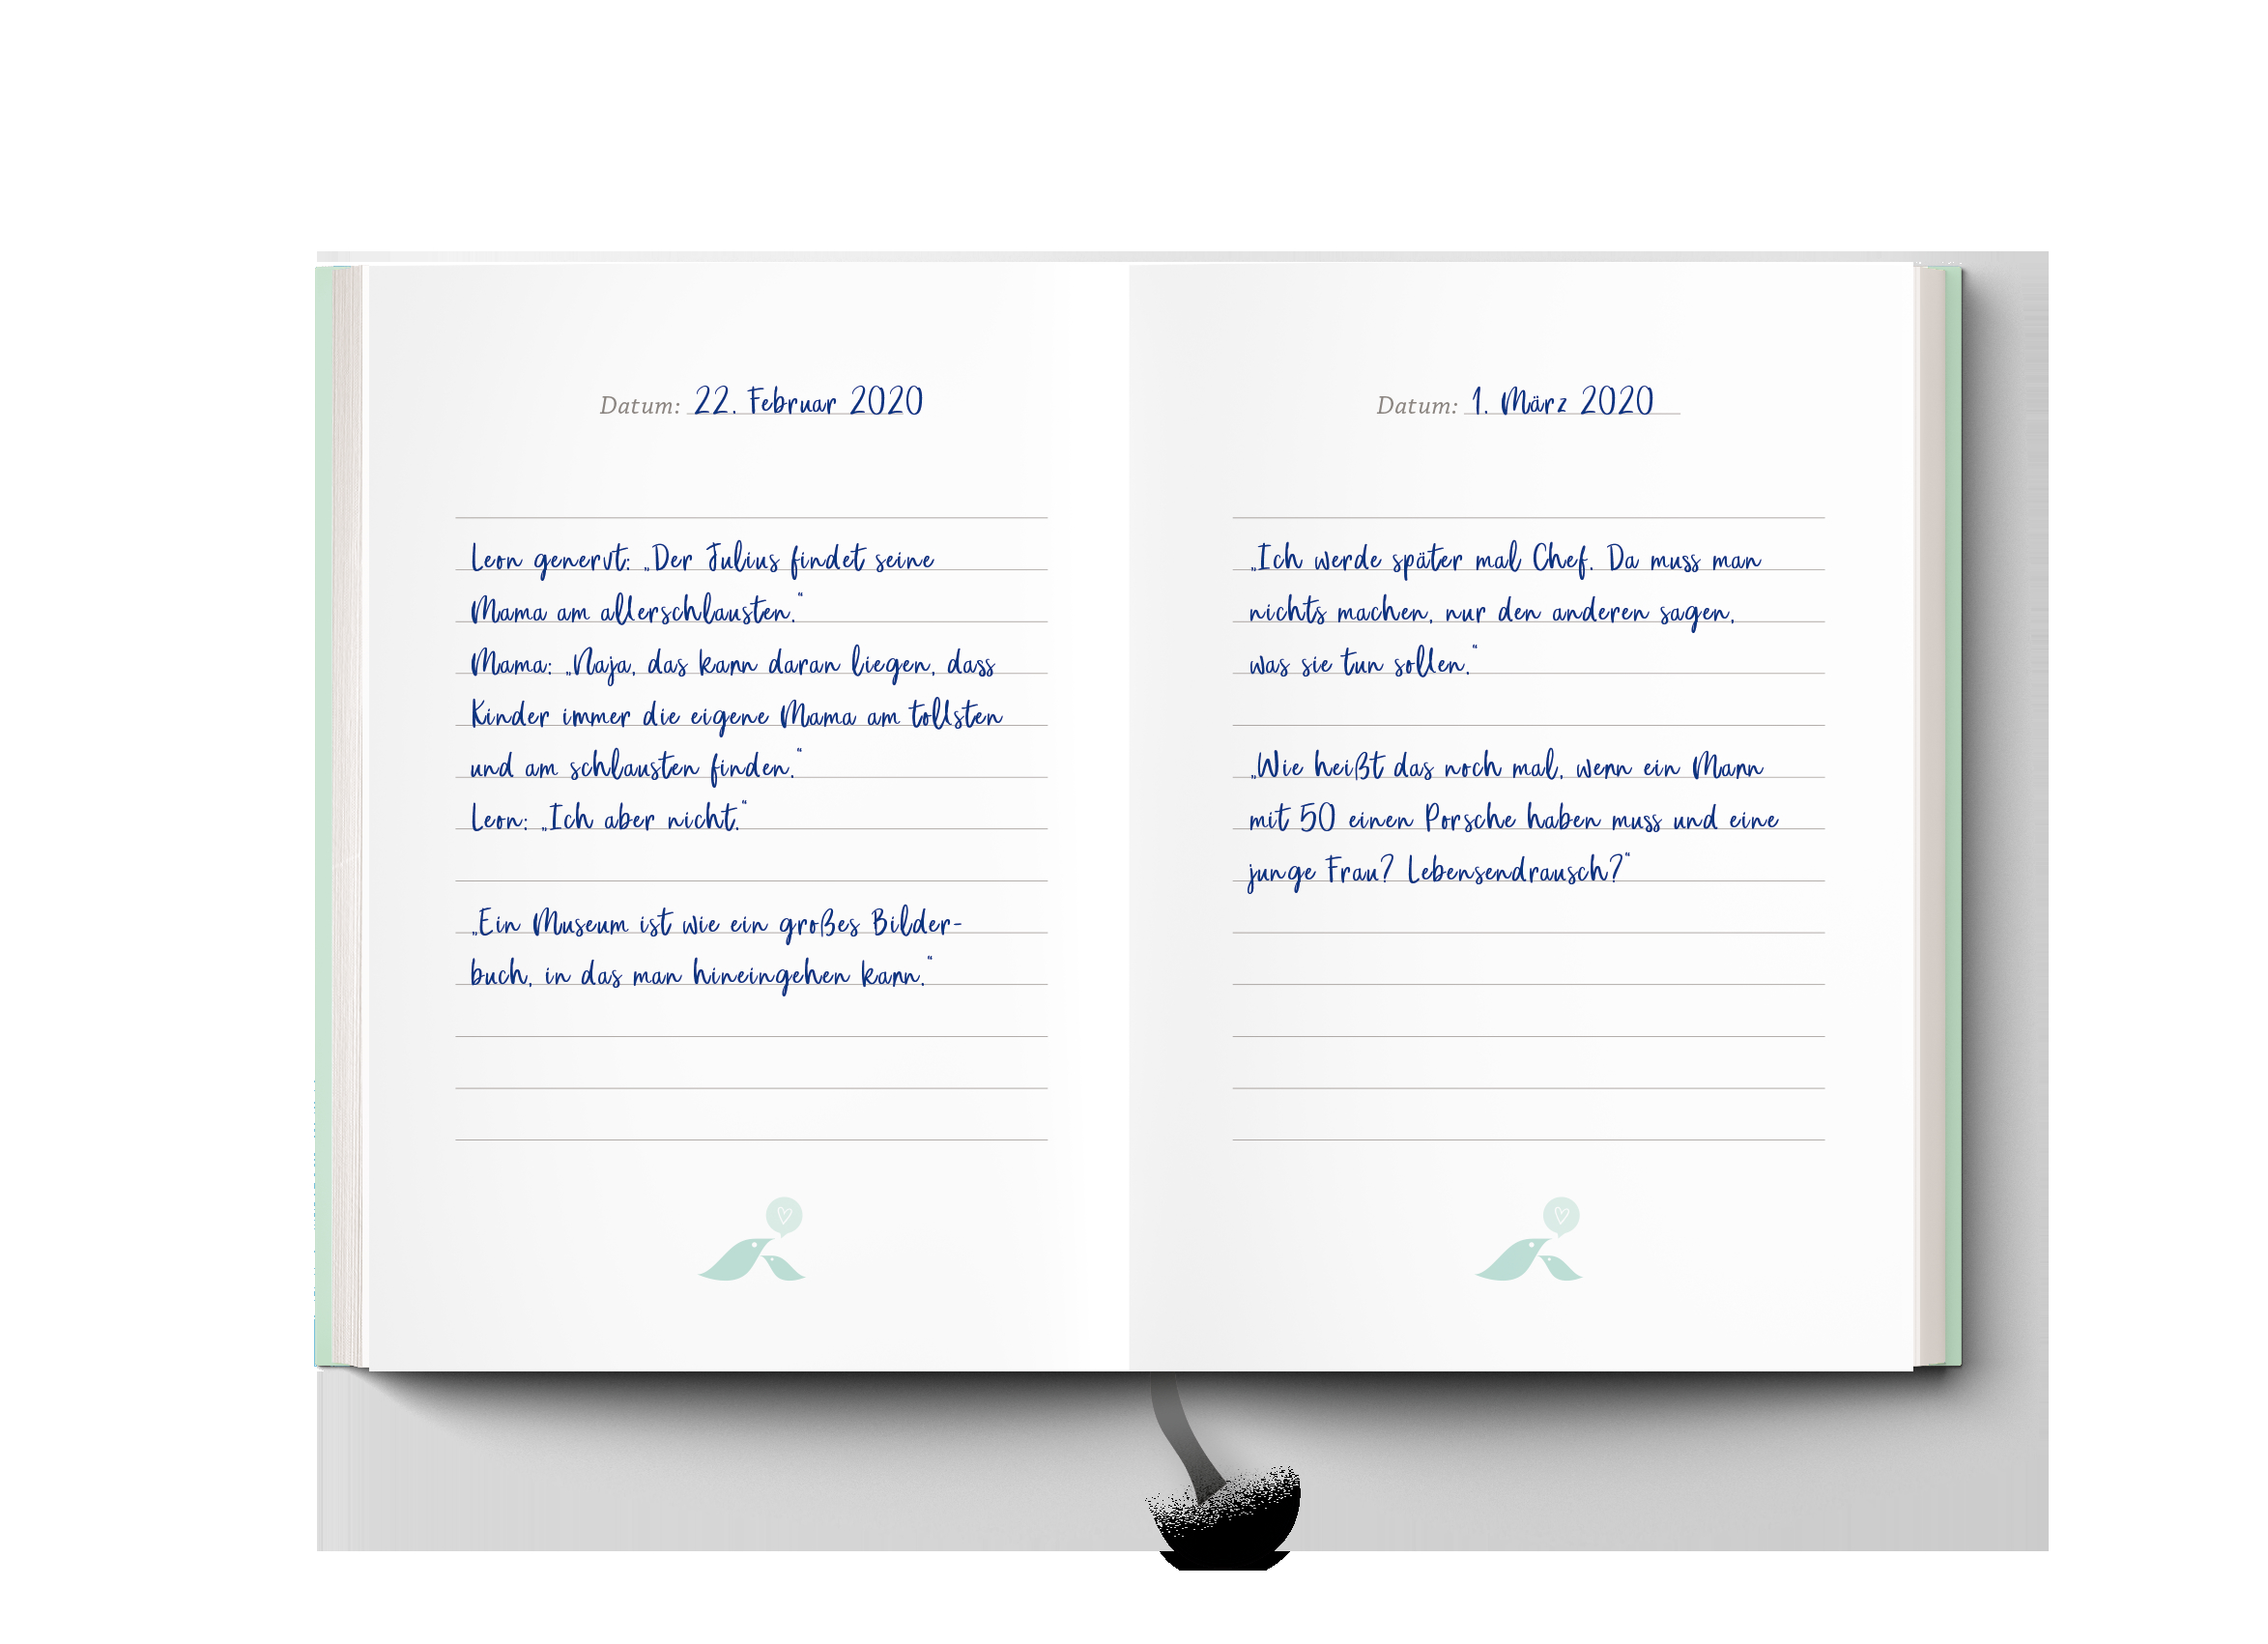 Datum: 22. Februar 2020
Leon genervt: „Der Julius findet seine
Mama am allerschlausten.“
Mama: „Naja, das kann daran liegen, dass
Kinder immer die eigene Mama am tollsten
und am schlausten finden.“
Leon: „Ich aber nicht.“
„Ein Museum ist wie ein großes Bilder-
buch, in das man hineingehen kann.“
Datum: 1. März 2020
„Ich werde später mal Chef. Da muss man
nichts machen, nur den anderen sagen,
was sie tun sollen.“
„Wie heißt das noch mal, wenn ein Mann
mit 50 einen Porsche haben muss und eine
junge Frau? Lebensendrausch?“